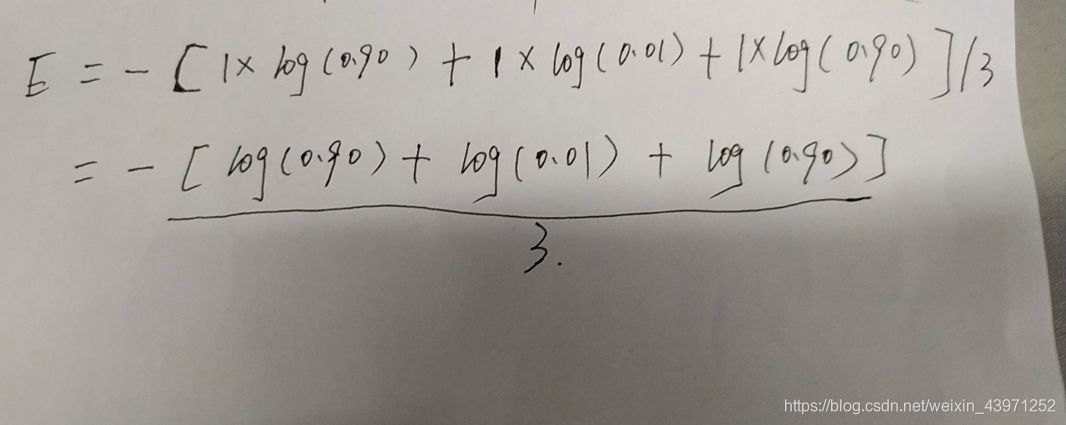 E = - [ 1× log(0.90) + 1 × log(0.01) + 1×log(0.90) ] /3
= - [ log(0.90) + log(0.01) + log(0.90) ]
3.
https://blog.csdn.net/weixin_43971252